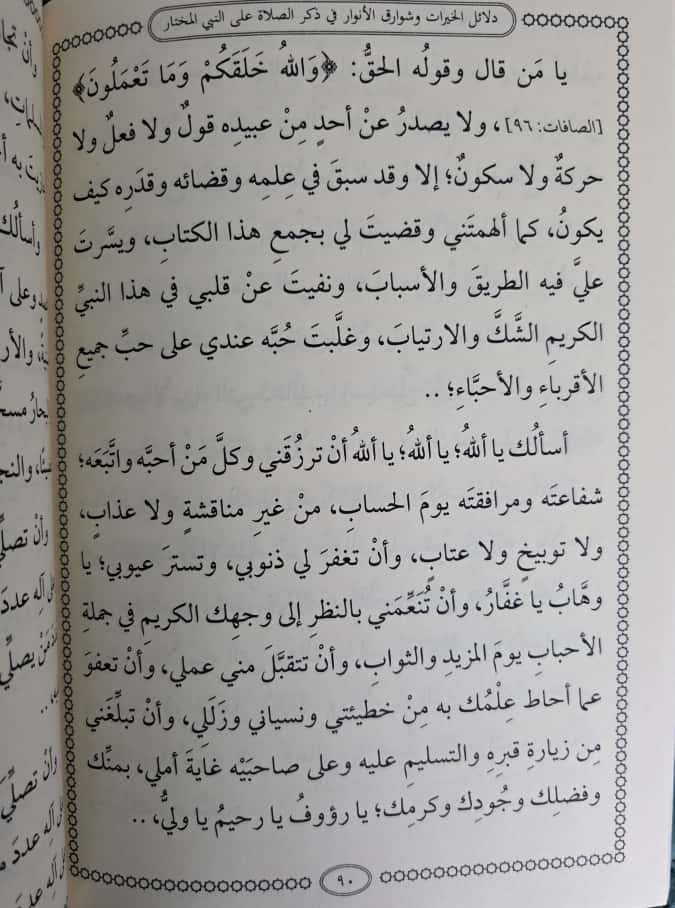 دلائل الخيرات وشوارق الأنوار في ذكر الصلاة على النبي المختار
يا مَن قال وقولُه الحقُّ: ﴿وَاللهُ خَلَقَكُمْ وَمَا تَعْمَلُونَ﴾
[الصافات: ٩٦]، ولا يصدرُ عنْ أحدٍ مِنْ عبيدِه قولٌ ولا فعلٌ ولا
حركةٌ ولا سكونٌ؛ إلا وقد سبقَ في عِلمِه وقضائه وقدَرِه كيف
يكونُ، كما ألهمتَني وقضيتَ لي بجمعِ هذا الكتابِ، ويسَّرتَ
عليَّ فيه الطريقَ والأسبابَ، ونفيتَ عنْ قلبي في هذا النبيِّ
الكريمِ الشَّكَّ والارتيابَ، وغلَّبتَ حُبَّه عندي على حبِّ جميعِ
الأقرباءِ والأحبَّاءِ؛ ..
أسألُك يا اللهُ؛ يا اللهُ؛ يا اللهُ أنْ ترزُقَني وكلَّ مَنْ أحبَّه واتَّبَعَه؛
شفاعتَه ومرافقتَه يومَ الحسابِ، منْ غيرِ مناقشةٍ ولا عذابٍ،
ولا توبيخٍ ولا عتابٍ، وأنْ تغفرَ لي ذنوبي، وتسترَ عيوبي؛ يا
وهَّابُ يا غفَّارُ، وأنْ تُنَعِّمَني بالنظرِ إلى وجهِك الكريمِ في جملةِ
الأحبابِ يومَ المزيدِ والثوابِ، وأنْ تتقبَّلَ مني عملي، وأنْ تعفوَ
عما أحاط عِلْمُك به مِنْ خطيئتي ونسياني وزَلَلي، وأنْ تبلِّغَني
مِن زيارةِ قبرِهِ والتسليمِ عليه وعلى صاحبَيْه غايَةَ أملي، بمنِّك
وفضلِك وجُودِك وكرمِك؛ يا رؤوفُ يا رحيمُ يا وليُّ، ..
٩٠